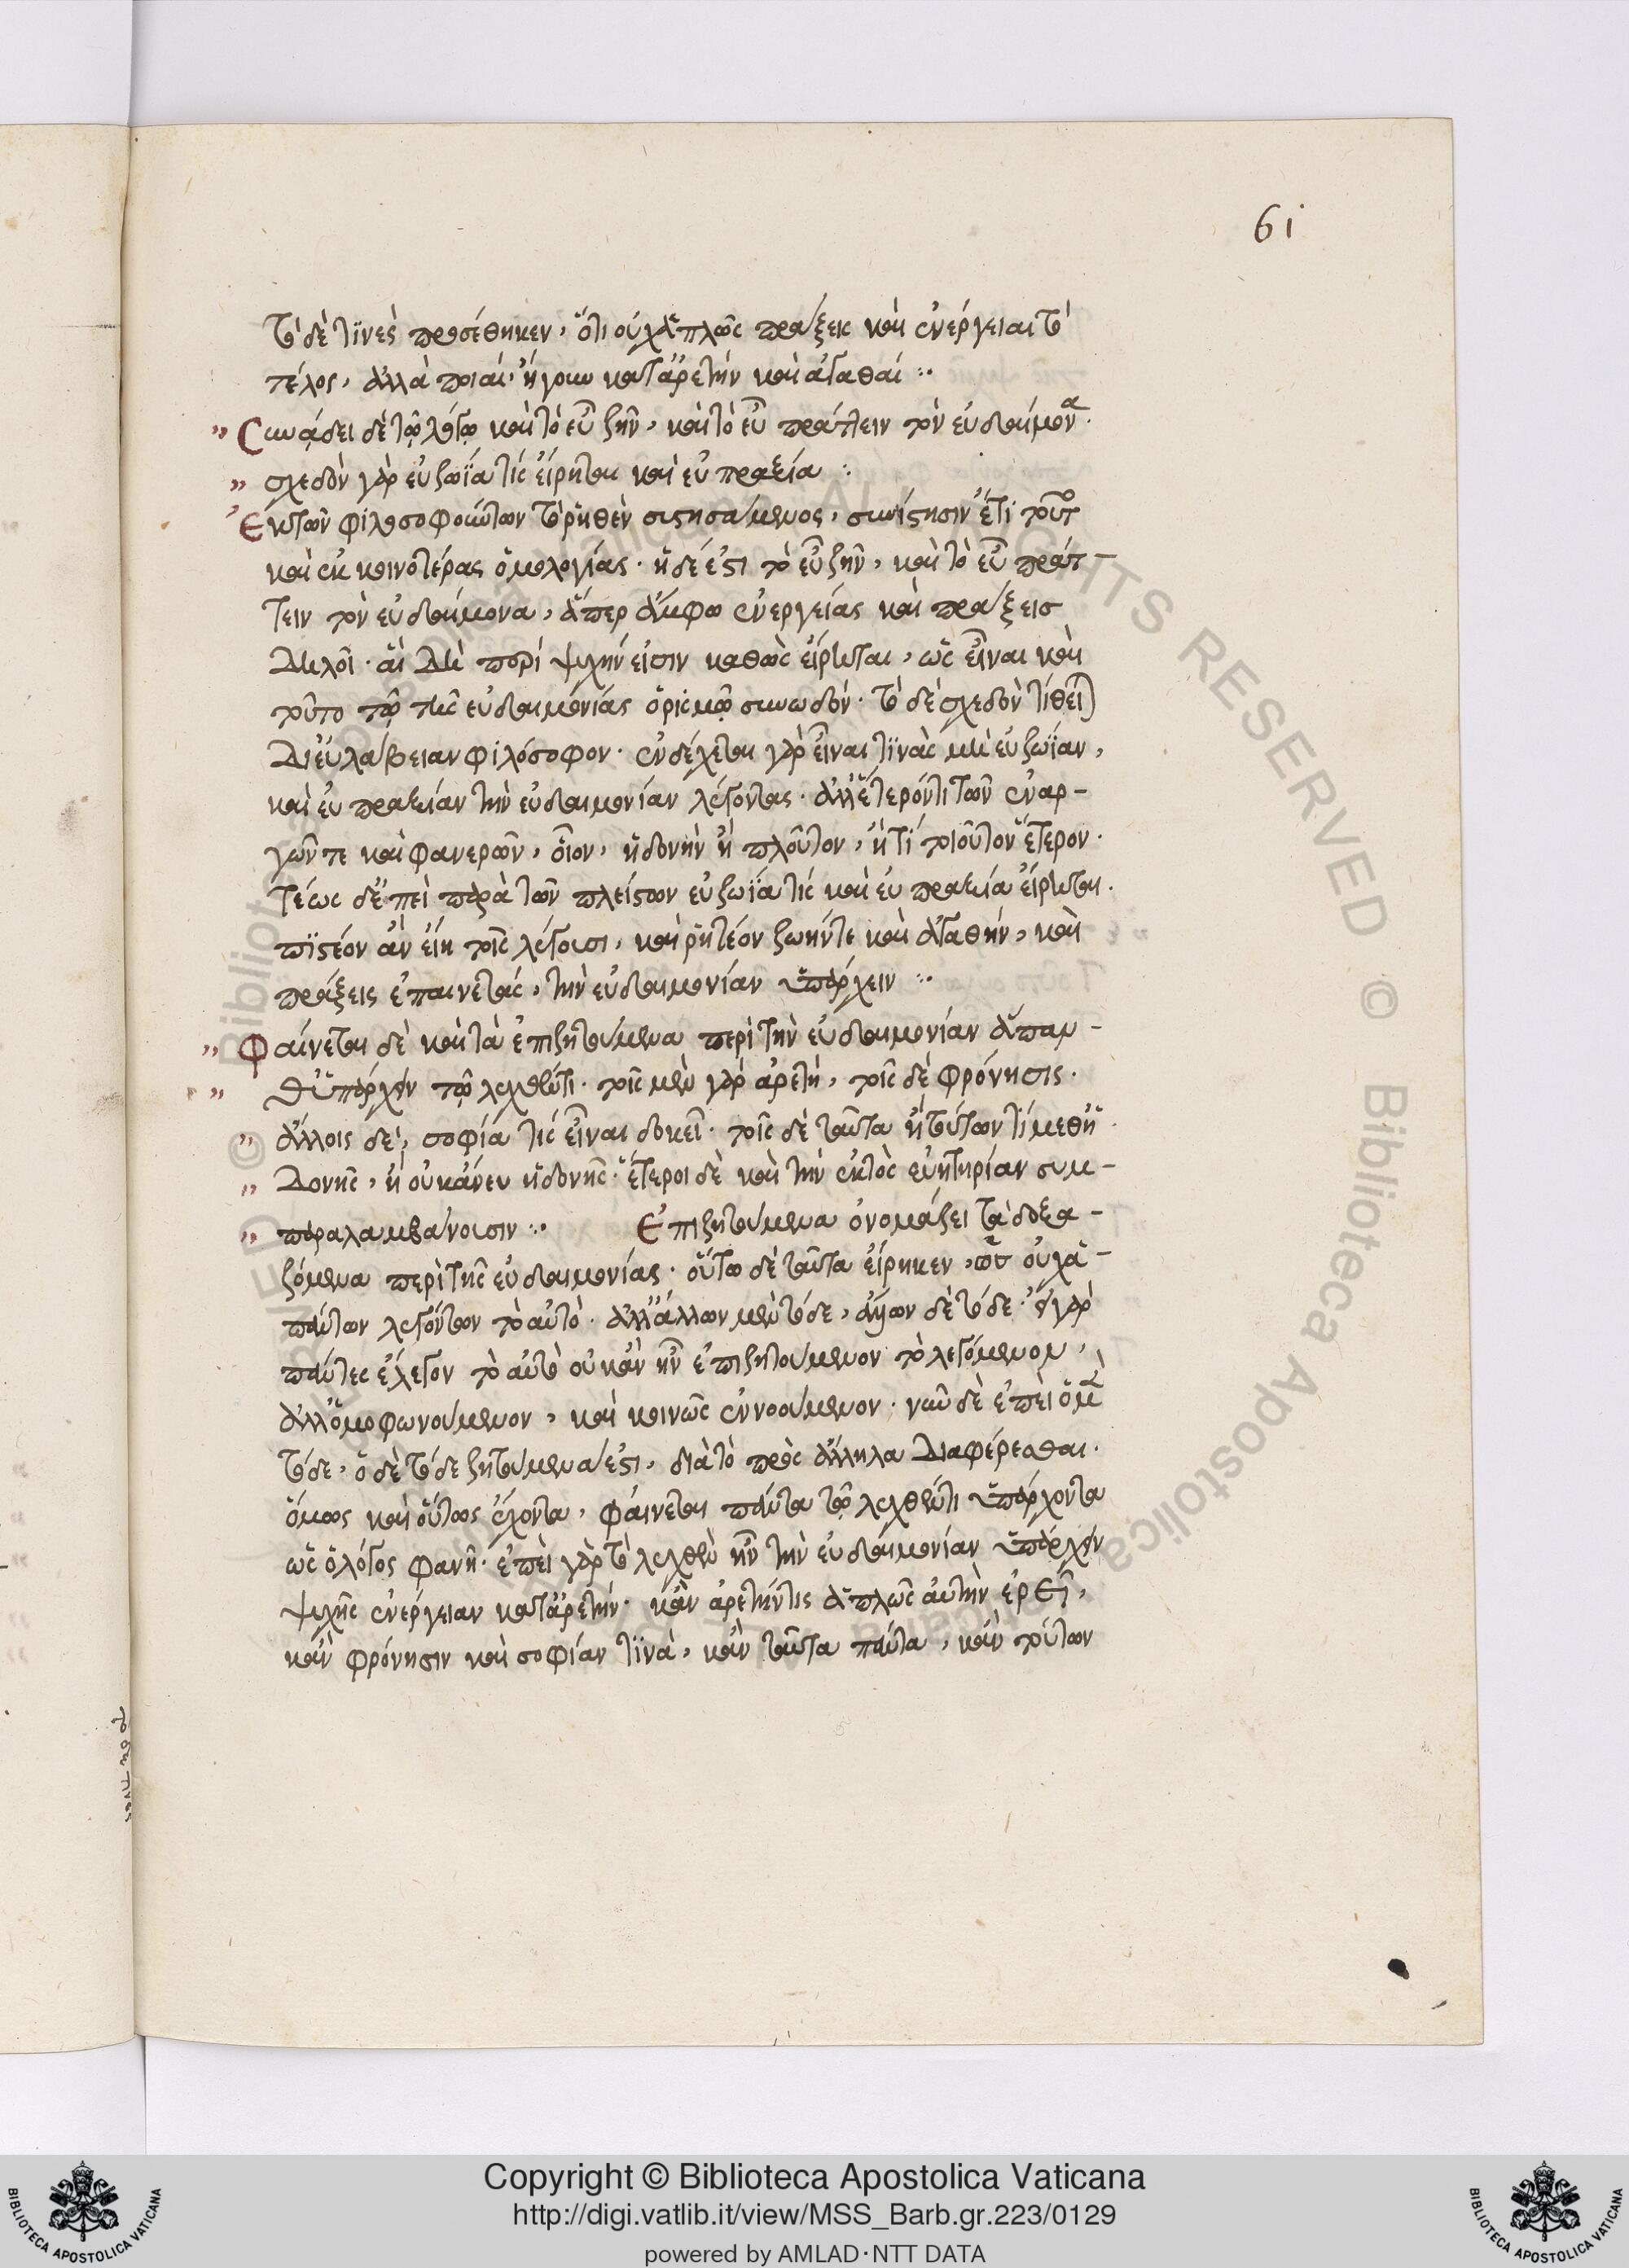 61
τὸ δὲ τινὲς προσέθηκεν, ὅτι οὐχ ἁπλῶς πράξεις καὶ ἐνέργειαι τὸ
τέλος, ἀλλὰ ποιαί· ἤγουν κατ' ἀρετὴν καὶ ἀγαθαί :·
" Συνάδει δὲ τῷ λόγῳ καὶ τὸ εὖ ζῆν, καὶ τὸ εὖ πράττειν τὸν εὐδαίμονα·
" σχεδὸν γὰρ εὐζωΐα τίς εἴρηται καὶ εὐπραξία :·
Ἐκ τῶν φιλοσοφούντων τὸ ῥηθὲν συστησάμενος, συνίστησιν ἔτι τοῦτο
καὶ ἐκ κοινοτέρας ὁμολογίας· ἡ δέ ἐστι τὸ εὖ ζῆν, καὶ τὸ εὖ πράτ-
τειν τὸν εὐδαίμονα, ἅπερ ἄμφω ἐνεργείας καὶ πράξεις
δηλοῖ· αἳ δὴ περὶ ψυχήν εἰσιν καθὼς εἴρηται, ὡς εἶναι καὶ
τοῦτο τῷ τῆς εὐδαιμονίας ὁρισμῷ συνωδόν· τὸ δὲ σχεδὸν τίθεται
δι' εὐλάβειαν φιλόσοφον· ἐνδέχεται γὰρ εἶναι τινὰς μὴ εὐζωΐαν,
καὶ εὐπραξίαν τὴν εὐδαιμονίαν λέγοντας· ἀλλ' ἕτερόν τι τῶν ἐναρ-
γῶν τε καὶ φανερῶν, οἷον, ἡδονὴν ἢ πλοῦτον, ἤ τι τοιοῦτον ἕτερον·
τέως δ' ἐπεὶ παρὰ τῶν πλείστων εὐζωΐα τίς καὶ εὐπραξία εἴρηται·
πιστέον ἂν εἴη τοῖς λέγουσι, καὶ ῥητέον ζωήν τε καὶ ἀγαθήν, καὶ
πράξεις ἐπαινετάς, τὴν εὐδαιμονίαν ὑπάρχειν :·
" Φαίνεται δὲ καὶ τὰ ἐπιζητούμενα περὶ τὴν εὐδαιμονίαν ἅπαν-
" θ' ὑπάρχειν τῷ λεχθέντι· τοῖς μὲν γὰρ ἀρετή, τοῖς δὲ φρόνησις·
" ἄλλοις δὲ, σοφία τίς εἶναι δοκεῖ· τοῖς δὲ ταῦτα ἢ τούτων τί μεθ' ἡ-
" δονῆς, ἢ οὐκ ἄνευ ἡδονῆς· ἕτεροι δὲ καὶ τὴν ἐκτὸς εὐετηρίαν συμ-
" παραλαμβάνουσιν :· Ἐπιζητούμενα ὀνομάζει τὰ δοξα-
ζόμενα περὶ τῆς εὐδαιμονίας· οὕτω δὲ ταῦτα εἴρηκεν, ὡς οὐχ ἁ-
πάντων λεγόντων τὸ αὐτό· ἀλλ' ἄλλων μὲν τόδε, ἄλλων δὲ τόδε· εἰ γὰρ
πάντες ἔλεγον τὸ αὐτὸ οὐκ ἂν ἦν ἐπιζητούμενον τὸ λεγόμενον,
ἀλλ' ὁμοφωνούμενον, καὶ κοινῶς ἐννοούμενον· νῦν δὲ ἐπεὶ ὁ μὲν
τόδε, ὁ δὲ τόδε ζητούμενα ἐστι, διὰ τὸ πρὸς ἄλληλα διαφέρεσθαι·
ὅμως καὶ οὕτως ἔχοντα, φαίνεται πάντα τῷ λεχθέντι ὑπάρχοντα
ὡς ὁ λόγος φανῆ· ἐπεὶ γὰρ τὸ λεχθὲν ἦν τὴν εὐδαιμονίαν ὑπάρχειν
ψυχῆς ἐνέργειαν κατ' ἀρετήν· κἂν ἀρετήν τις ἁπλῶς αὐτὴν ἐρεῖ,
κἂν φρόνησιν καὶ σοφίαν τινὰ, κἂν ταῦτα πάντα, κἂν τούτων
Copyright © Biblioteca Apostolica Vaticana
http://digi.vatlib.it/view/MSS_Barb.gr.223/0129
powered by AMLAD·NTT DATA